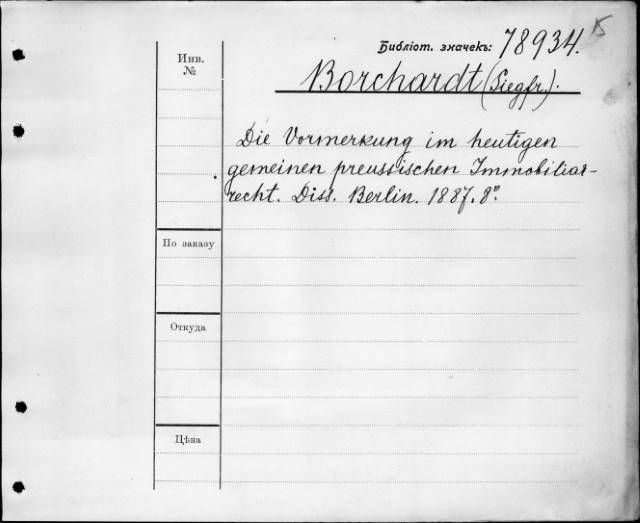 К
Библіот. значекъ: 78934.
Инв.
№
Borchardt (Siegfr.).
Die Vormerkung im heutigen
gemeinen preussischen Immobiliar-
recht. Diss. Berlin. 1887. 8°.
По заказу
Откуда
Цѣна